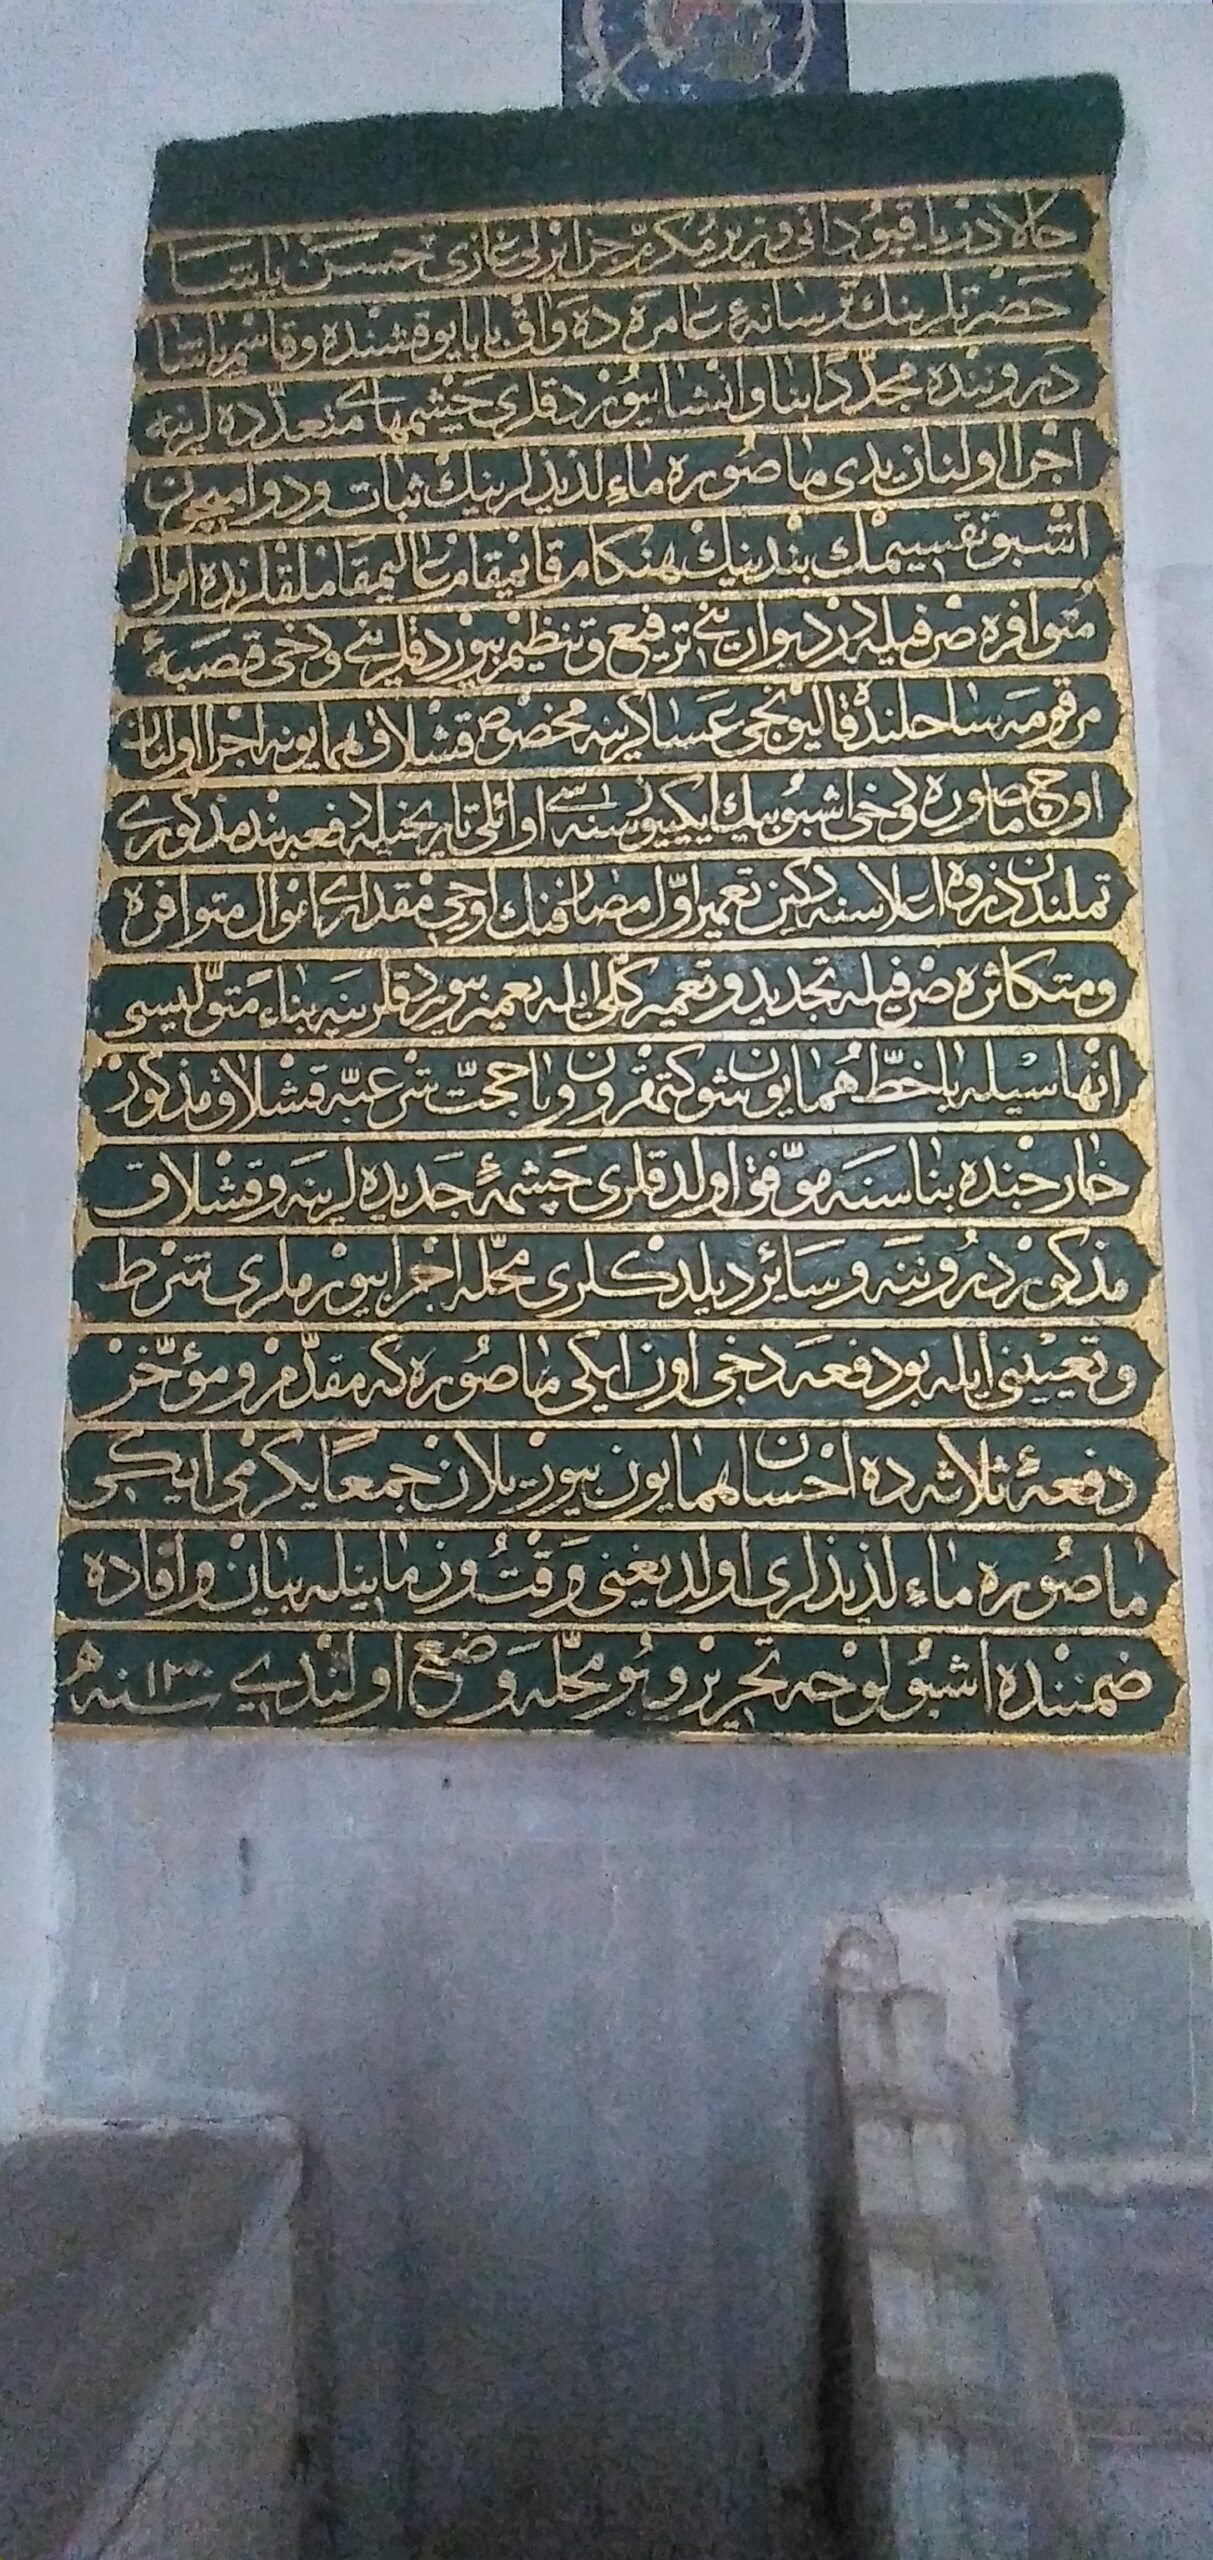 حالا دریا قپودانی وزیر مکرم جزایرلی غازی حسن پاشا
حضرتلرینك ترسانهٔ عامره ده واقع بابا یوقشنده و قاسم پاشا
درونندە مجدّدًا بنا وانشا بیوردقلری چشمهای متعدّده لرینه
اجرا اولنان یدی ماصوره ماء لذیذلرینك ثبات ودوامیچون
اشبو تقسیمك بندینك هنكام قایمقام عالیمقاملقلرنده اموال
متوافره صرفیله در دیوارینی ترفیع و تنظیم بیوردقلرینی ودخی قصبهٔ
مرقومه ساحلنده قالیونجی عساكرینه مخصوص قشلاق همایونه اجرا اولنان
اوچ ماصوره دخی اشبو بیك ایكییوز سنه سی اوائلی تاریخیله دفعه بند مذكوری
تملندن ذروه اعلاسنه دكین تعمیر اوّل مصارفنك اوچ مقداری اموال متوافره
ومتكاثره صرفیله تجدید و تعمیر كلّی ایله تعمیر بیوردقلرینه بناء متوّلیسی
انهاسیله با خطّ همایون شوكتمقرون و با حجّت شرعیّه قشلاق مذكور
خارجنده بناسنه موّفق اولدقلری چشمهٔ جدیده لرینه و قشلاق
مذكور دروننه و سائر دیلدكلری محلّه اجرا بیورملری شرط
و تعیینی ایله بو دفعه دخی اون ایكی ماصوره كه مقدّم و مؤخّر
دفعهٔ ثلاثه ده احسان همایون بیوریلان جمعًا یكرمی ایكی
ماصوره ماء لذیذلری اولدیغنی وقت و زمانیله بیان و افاده
ضمننده اشبو لوحه تحریر و بو محلّه وضع اولندی سنه ١٢٠٠ ه